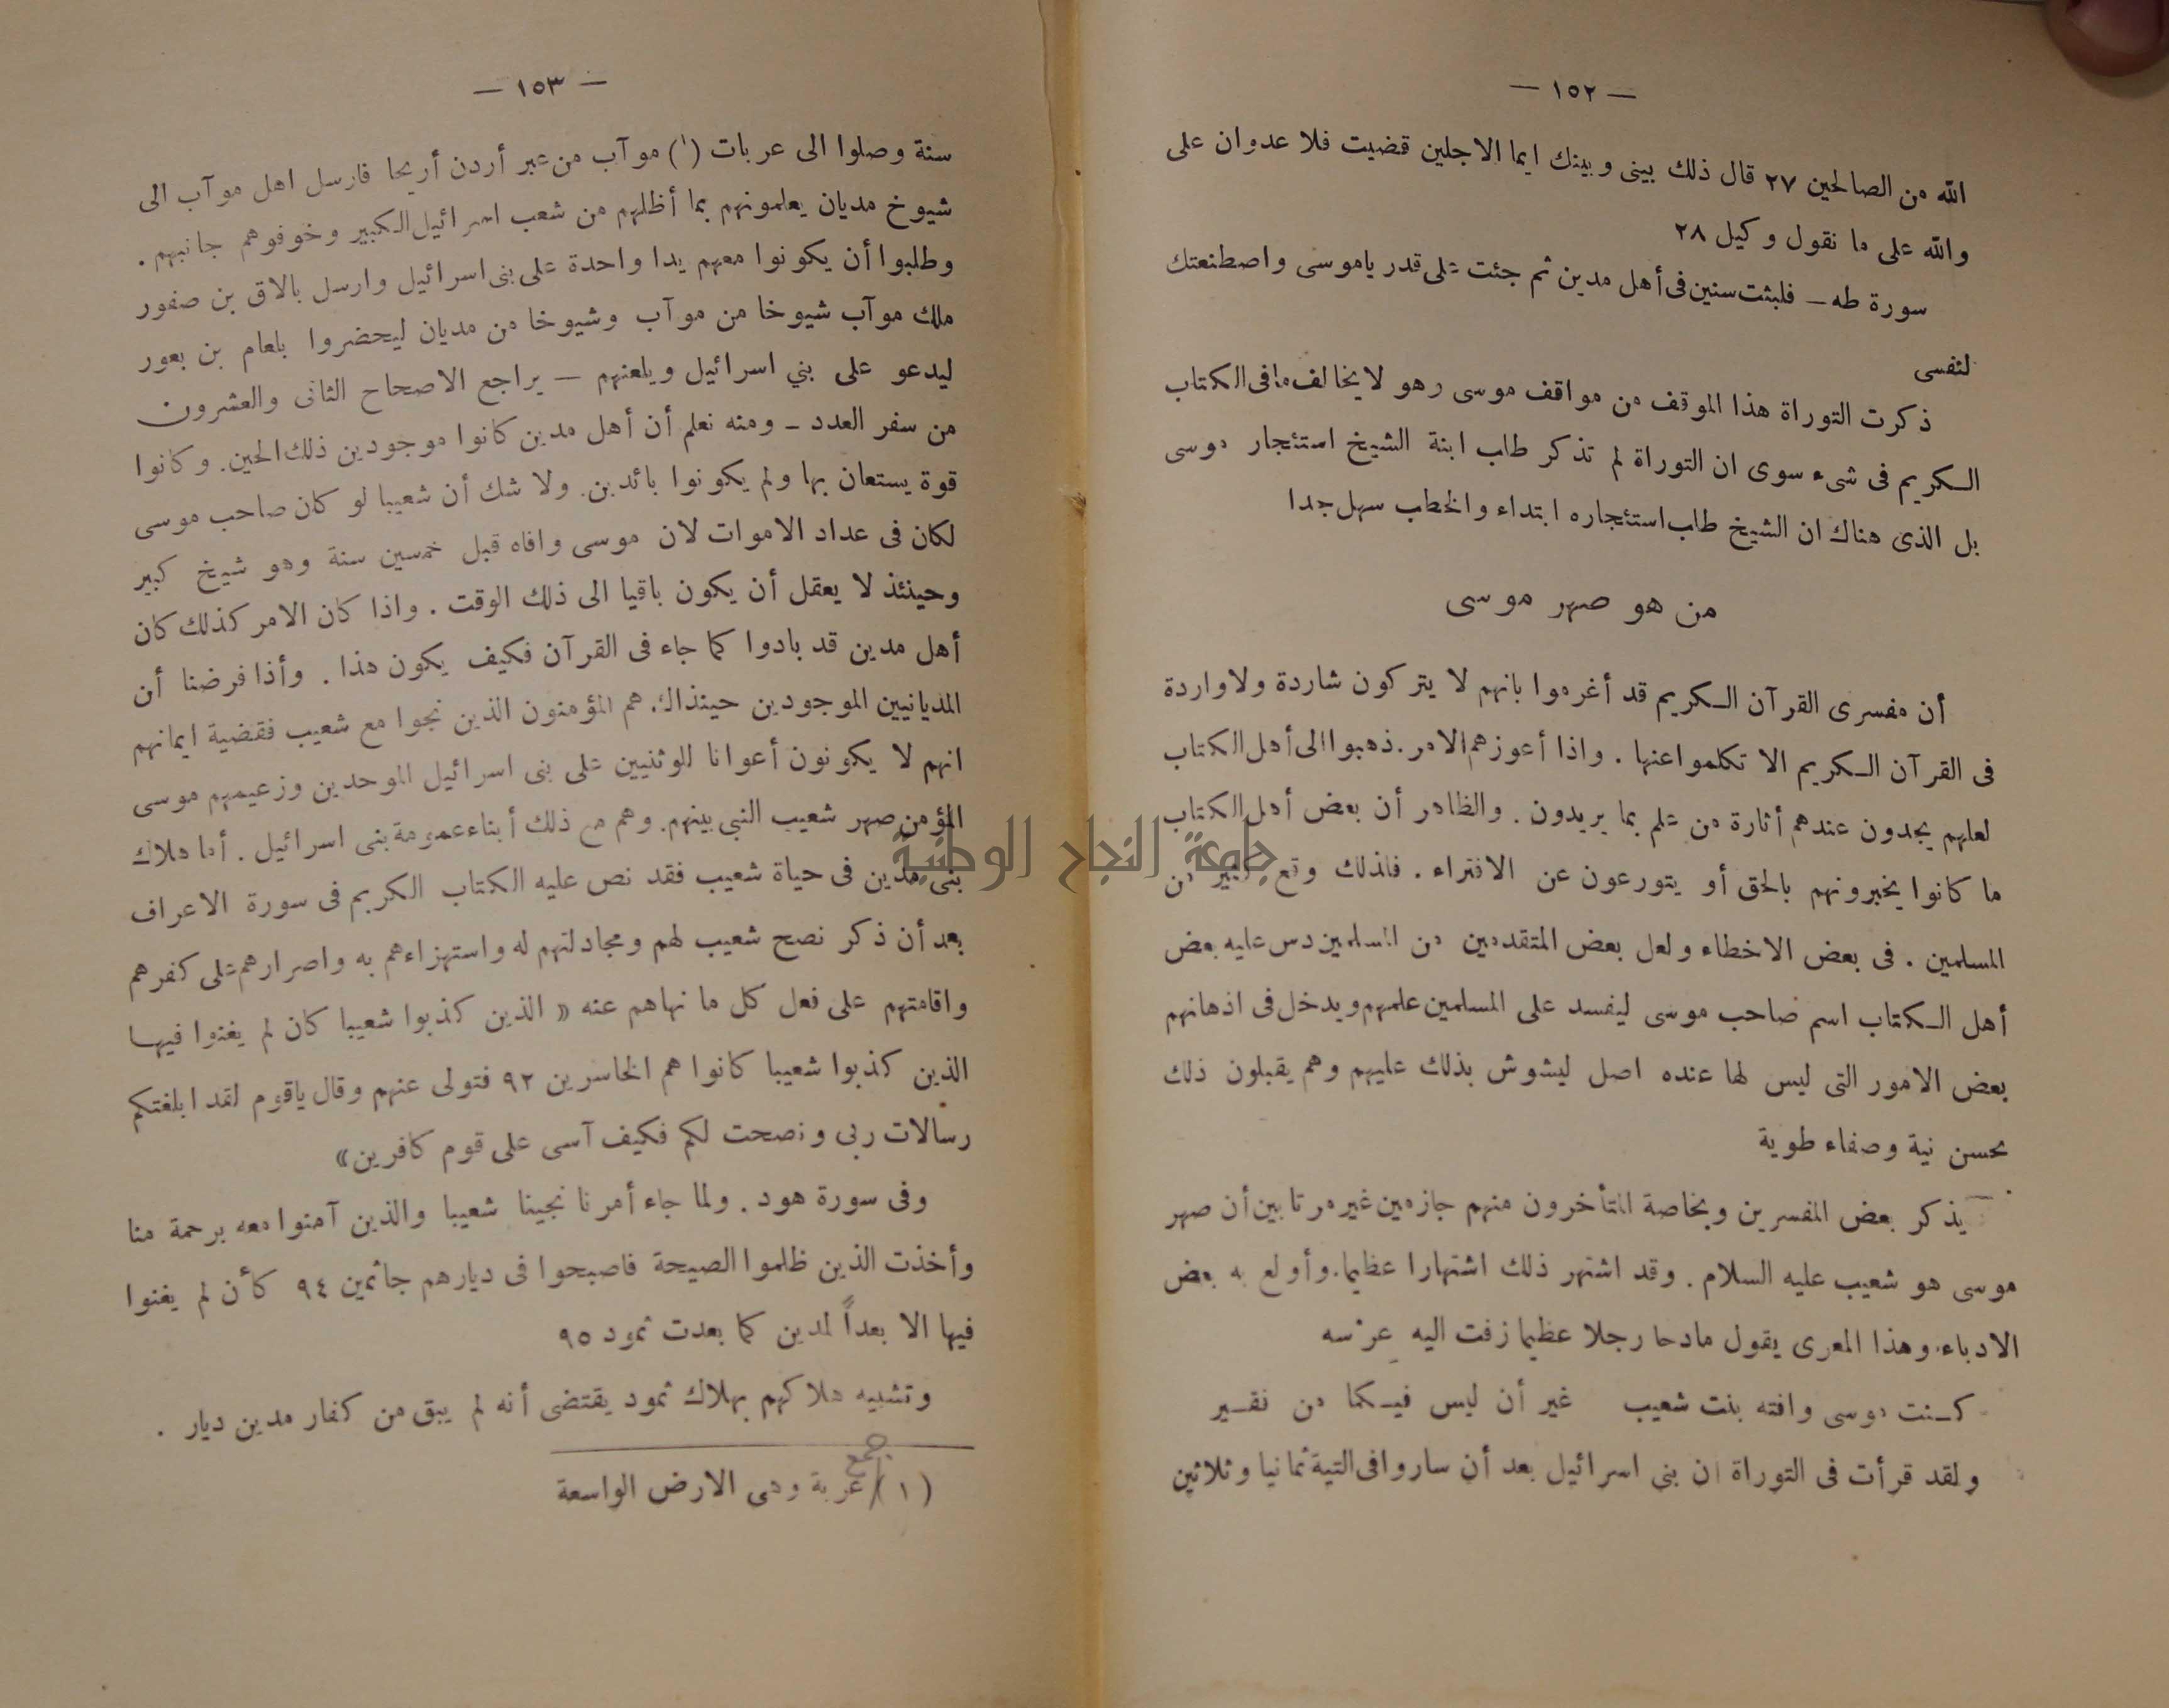 — ١٥٢ —
الله من الصالحين ٢٧ قال ذلك بينى وبينك ايما الاجلين قضيت فلا عدوان على
والله على ما نقول وكيل ٢٨
سورة طه — فلبثت سنين فى أهل مدين ثم جئت على قدر ياموسى واصطنعتك
لنفسى
ذكرت التوراة هذا الموقف من مواقف موسى وهو لا يخالف مافى الكتاب
الكريم فى شىء سوى ان التوراة لم تذكر طلب ابنة الشيخ استئجار موسى
بل الذى هناك ان الشيخ طلب استئجاره ابتداء والخطب سهل جدا
من هو صهر موسى
أن مفسرى القرآن الكريم قد أغرموا بانهم لا يتركون شاردة ولا واردة
فى القرآن الكريم الا تكلموا عنها . واذا أعوزهم الامر . ذهبوا الى أهل الكتاب
لعلهم يجدون عندهم أثارة من علم بما يريدون . والظاهر أن بعض أهل الكتاب
ما كانوا يخبرونهم بالحق أو يتورعون عن الافتراء . فلذلك وقع كثير من
المسلمين . فى بعض الاخطاء ولعل بعض المتقدمين من المسلمين دس عليه بعض
أهل الكتاب اسم صاحب موسى ليفسد على المسلمين علمهم ويدخل فى اذهانهم
بعض الامور التى ليس لها عنده اصل ليشوش بذلك عليهم وهم يقبلون ذلك
بحسن نية وصفاء طوية
يذكر بعض المفسرين وبخاصة المتأخرون منهم جازمين غير مرتابين أن صهر
موسى هو شعيب عليه السلام . وقد اشتهر ذلك اشتهارا عظيما . وأولع به بعض
الادباء . وهذا المعرى يقول مادحا رجلا عظيما زفت اليه عرسه
كنت موسى وافته بنت شعيب غير أن ليس فيكما من نقير
ولقد قرأت فى التوراة ان بنى اسرائيل بعد أن ساروا فى التية ثمانيا وثلاثين
— ١٥٣ —
سنة وصلوا الى عربات (١) موآب من عبر أردن أريحا فارسل اهل موآب الى
شيوخ مديان يعلمونهم بما أظلهم من شعب اسرائيل الكبير وخوفوهم جانبهم .
وطلبوا أن يكونوا معهم يدا واحدة على بنى اسرائيل وارسل بالاق بن صفور
ملك موآب شيوخا من موآب وشيوخا من مديان ليحضروا بلعام بن بعور
ليدعو على بني اسرائيل ويلعنهم — يراجع الاصحاح الثانى والعشرون
من سفر العدد — ومنه نعلم أن أهل مدين كانوا موجودين ذلك الحين . وكانوا
قوة يستعان بها ولم يكونوا بائدين . ولا شك أن شعيبا لو كان صاحب موسى
لكان فى عداد الاموات لان موسى وافاه قبل خمسين سنة وهو شيخ كبير
وحينئذ لا يعقل أن يكون باقيا الى ذلك الوقت . واذا كان الامر كذلك كان
أهل مدين قد بادوا كما جاء فى القرآن فكيف يكون هذا . وأذا فرضنا أن
المديانيين الموجودين حينذاك هم المؤمنون الذين نجوا مع شعيب فقضية ايمانهم
انهم لا يكونون أعوانا للوثنيين على بنى اسرائيل الموحدين وزعيمهم موسى
المؤمن صهر شعيب النبي بينهم . وهم مع ذلك أبناء عمومة بنى اسرائيل . أما هلاك
بنى مدين فى حياة شعيب فقد نص عليه الكتاب الكريم فى سورة الاعراف
بعد أن ذكر نصح شعيب لهم ومجادلتهم له واستهزاءهم به واصرارهم على كفرهم
واقامتهم على فعل كل ما نهاهم عنه « الذين كذبوا شعيبا كان لم يغنوا فيها
الذين كذبوا شعيبا كانوا هم الخاسرين ٩٢ فتولى عنهم وقال ياقوم لقد ابلغتكم
رسالات ربى ونصحت لكم فكيف آسى على قوم كافرين»
وفى سورة هود . ولما جاء أمرنا نجينا شعيبا والذين آمنوا معه برحمة منا
وأخذت الذين ظلموا الصيحة فاصبحوا فى ديارهم جاثمين ٩٤ كأن لم يغنوا
فيها الا بعداً لمدين كما بعدت ثمود ٩٥
وتشبيه هلاكهم بهلاك ثمود يقتضى أنه لم يبق من كفار مدين ديار .
(١) جمع عربة وهى الارض الواسعة
جامعة النجاح الوطنية